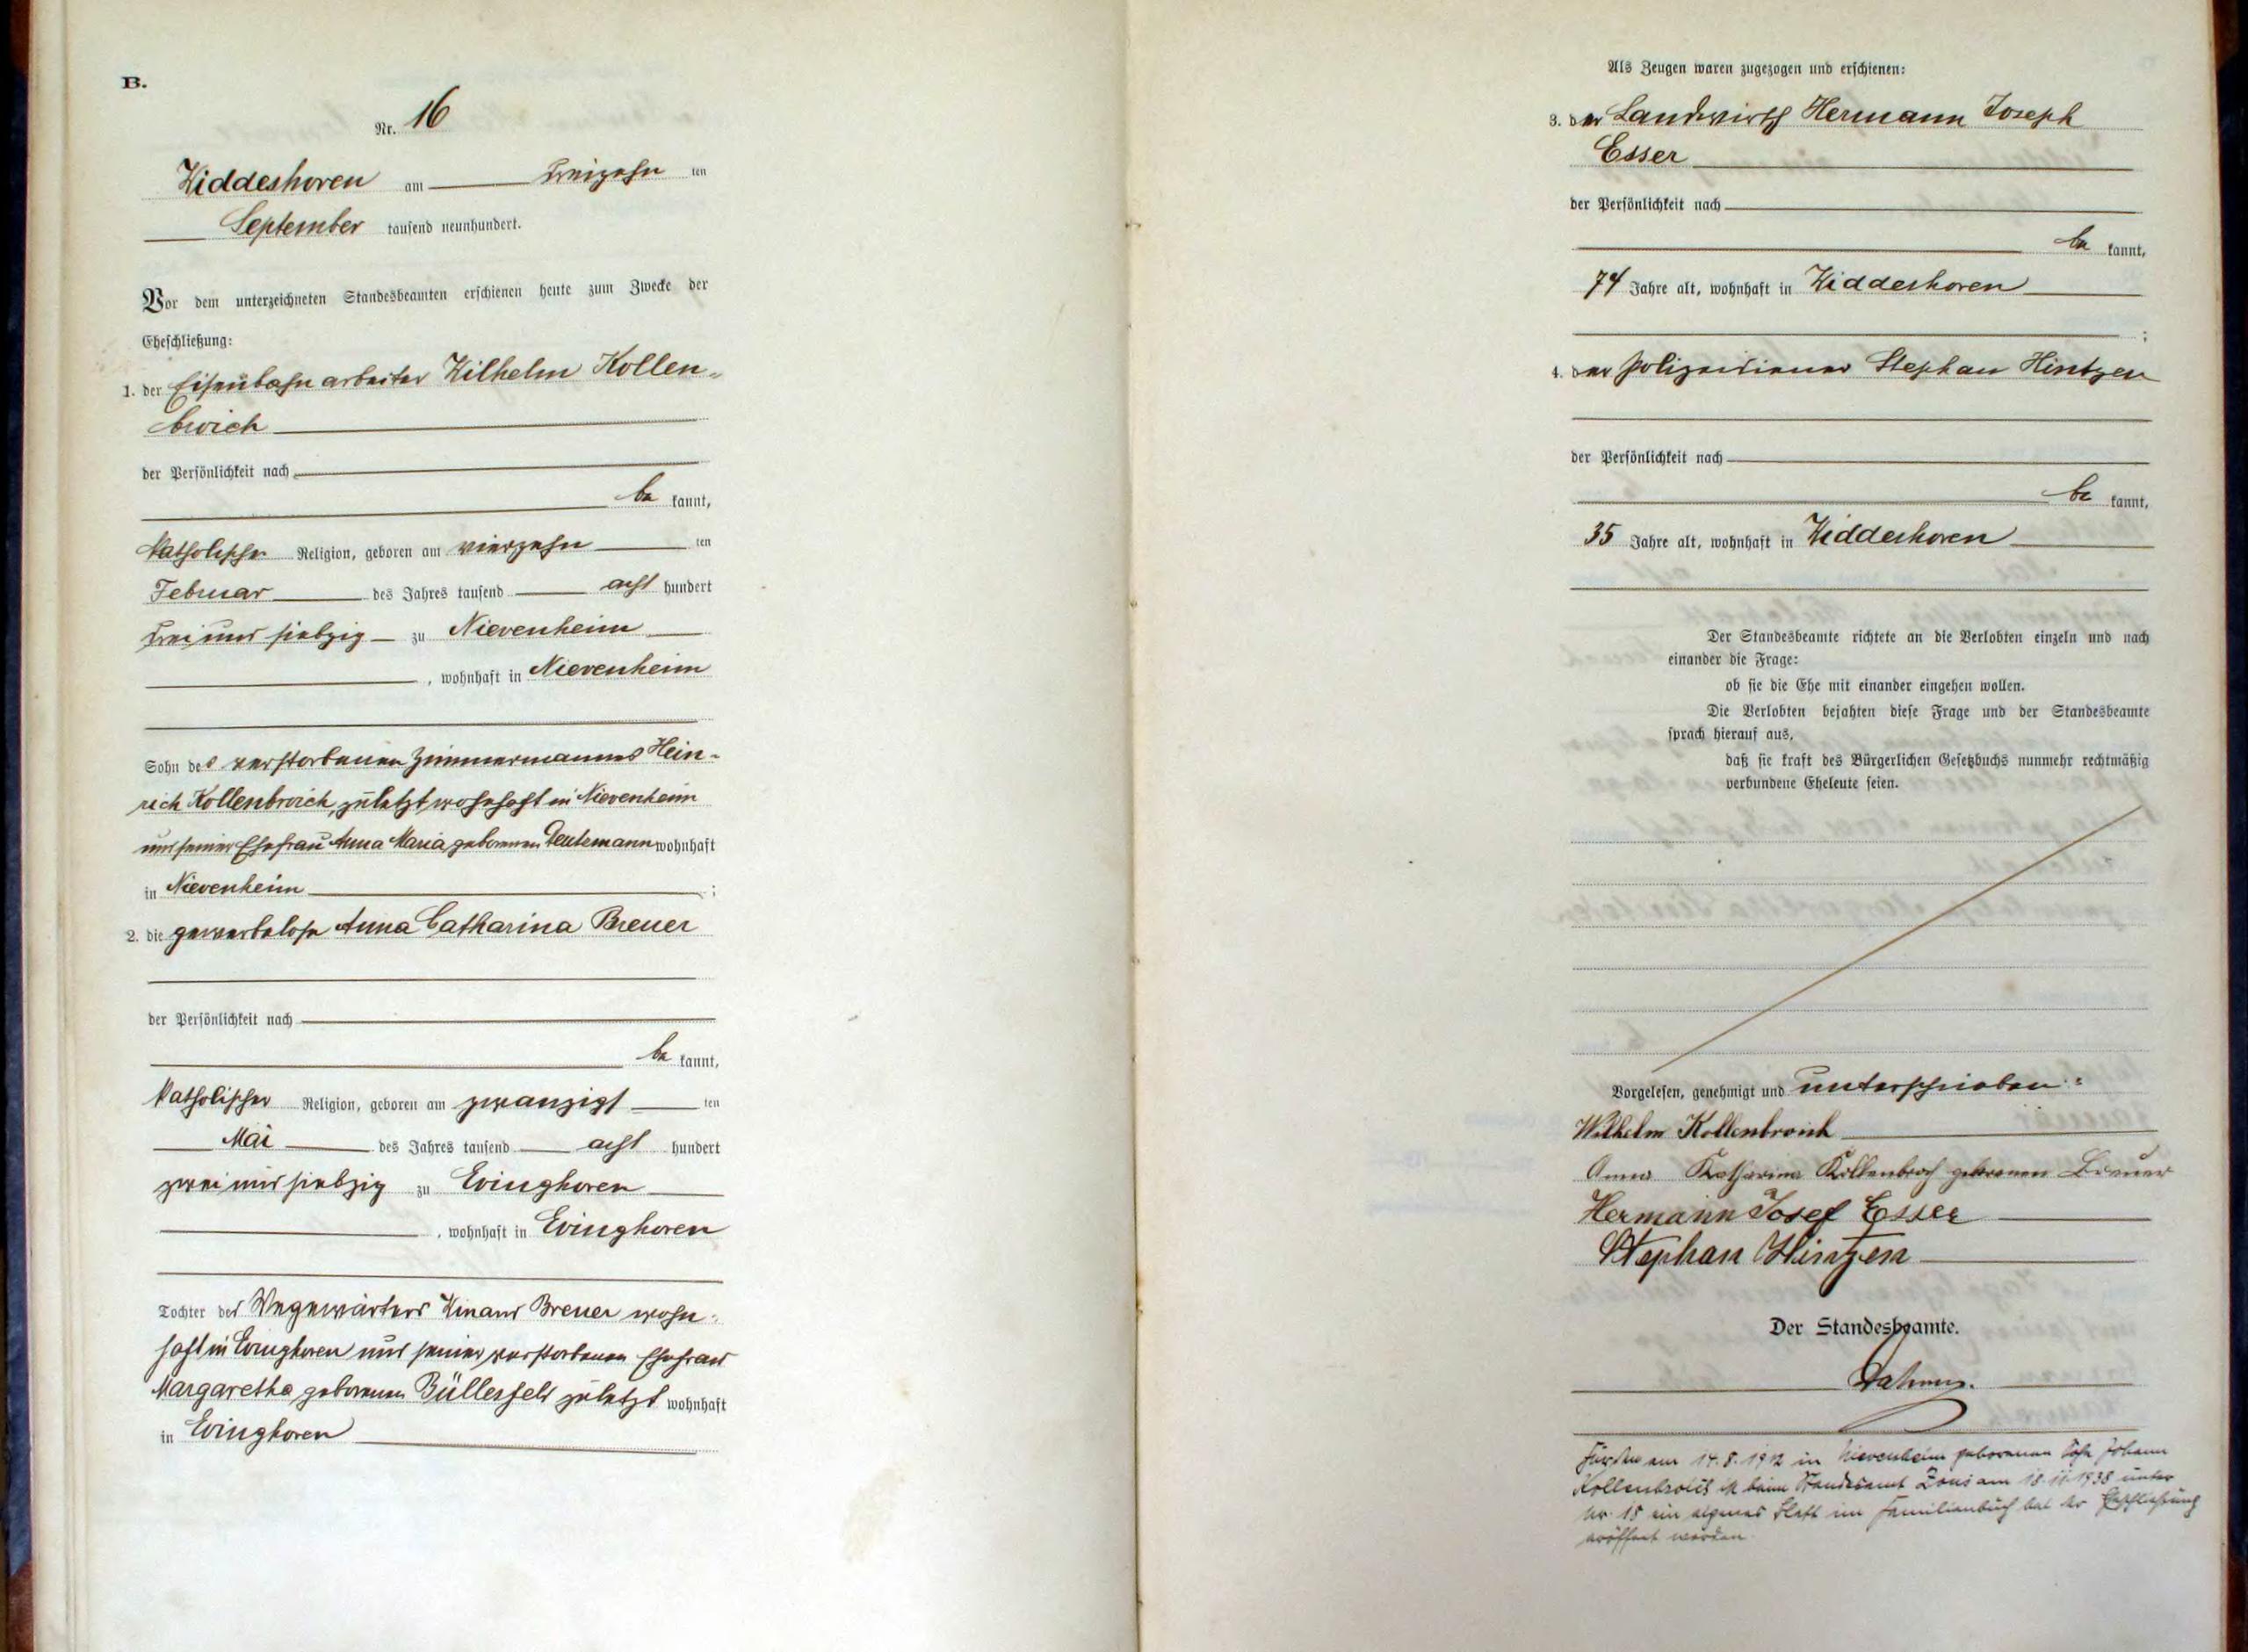 B.
Nr. 16
Widdeshoven am dreizehn ten
September tausend neunhundert.
Vor dem unterzeichneten Standesbeamten erschienen heute zum Zwecke der
Eheschließung:
1. der Eisenbahnarbeiter Wilhelm Kollen-
broich
der Persönlichkeit nach
be kannt,
katholischer Religion, geboren am vierzehn ten
Februar des Jahres tausend acht hundert
drei und siebzig zu Nievenheim
, wohnhaft in Nievenheim
Sohn des verstorbenen Zimmermannes Hein-
rich Kollenbroich, zuletzt wohnhaft in Nievenheim
und seiner Ehefrau Anna Maria geborenen Deutzmann wohnhaft
in Nievenheim ;
2. die gewerbelose Anna Catharina Breuer
der Persönlichkeit nach
be kannt,
katholischer Religion, geboren am zwanzigst ten
Mai des Jahres tausend acht hundert
zwei und siebzig zu Evinghoven
, wohnhaft in Evinghoven
Tochter des Wegewärters Winand Breuer wohn-
haft in Evinghoven und seiner verstorbenen Ehefrau
Margaretha geborenen Büllesfeld zuletzt wohnhaft
in Evinghoven
Als Zeugen waren zugezogen und erschienen:
3. der Landwirth Hermann Joseph
Esser
der Persönlichkeit nach
be kannt,
74 Jahre alt, wohnhaft in Widdeshoven
;
4. der Polizeidiener Stephan Hintzen
der Persönlichkeit nach
be kannt,
35 Jahre alt, wohnhaft in Widdeshoven
Der Standesbeamte richtete an die Verlobten einzeln und nach
einander die Frage:
ob sie die Ehe mit einander eingehen wollen.
Die Verlobten bejahten diese Frage und der Standesbeamte
sprach hierauf aus,
daß sie kraft des Bürgerlichen Gesetzbuchs nunmehr rechtmäßig
verbundene Eheleute seien.
Vorgelesen, genehmigt und unterschrieben:
Wilhelm Kollenbroich
Anna Katharina Kollenbroch geborenen Breuer
Hermann Josef Esser
Stephan Hintzen
Der Standesbeamte.
Für den am 14.8.1912 in Nievenheim geborenen Sohn Johann
Kollenbroich ist beim Standesamt Zons am 18.11.1938 unter
Nr. 18 ein eigenes Blatt im Familienbuch bei der Eheschließung
eröffnet worden